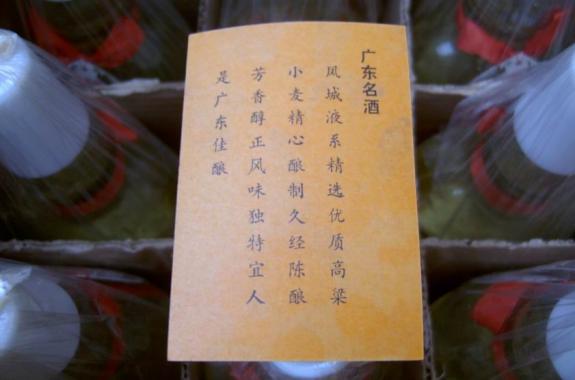 广东名酒
凤城液系精选优质高粱
小麦精心酿制久经陈酿
芳香醇正风味独特宜人
是广东佳酿